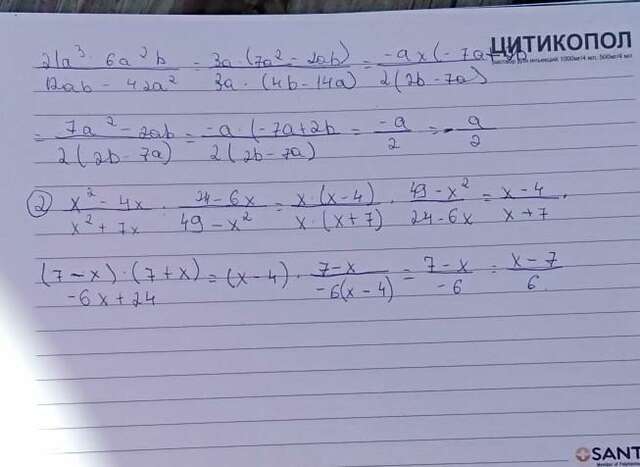 ЦИТИКОПОЛ
раствор для инъекций 1000мг/4 мл, 500мг/4 мл
21a³ · 6a²b / 12ab - 42a² = 3a · (7a² - 2ab) / 3a · (4b - 14a) = -a x (-7a + 2b / 2(2b - 7a)
= 7a² - 2ab / 2(2b - 7a) = -a · (-7a + 2b / 2(2b - 7a) = -a / 2 = - a / 2
② x² - 4x / x² + 7x · 24 - 6x / 49 - x² = x · (x - 4) / x · (x + 7) · 49 - x² / 24 - 6x = x - 4 / x + 7 ·
(7 - x) · (7 + x) / -6x + 24 = (x - 4) · 7 - x / -6(x - 4) = 7 - x / -6 = x - 7 / 6
SANT